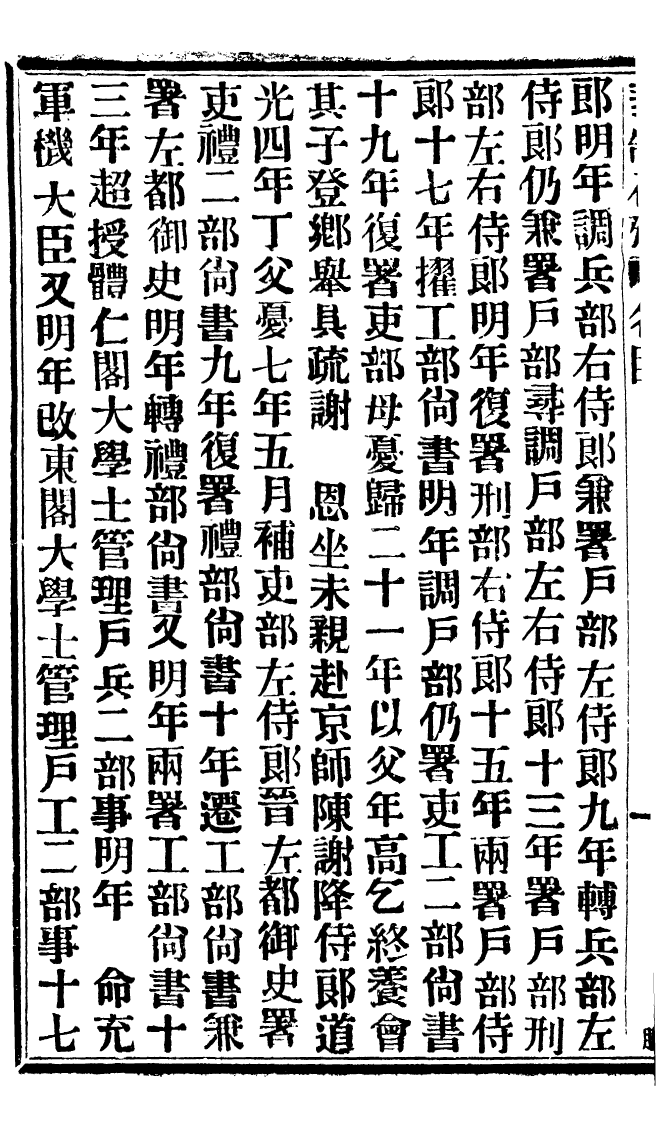 郎明年調兵部右侍郎兼署戶部左侍郎九年轉兵部左
侍郎仍兼署戶部尋調戶部左右侍郎十三年署戶部刑
部左右侍郎明年復署刑部右侍郎十五年兩署戶部侍
郎十七年擢工部尙書明年調戶部仍署吏工二部尙書
十九年復署吏部母憂歸二十一年以父年高乞終養會
其子登鄕舉具疏謝　恩坐未親赴京師陳謝降侍郎道
光四年丁父憂七年五月補吏部左侍郎晉左都御史署
吏禮二部尙書九年復署禮部尙書十年遷工部尙書兼
署左都御史明年轉禮部尙書又明年兩署工部尙書十
三年超授體仁閣大學士管理戶兵二部事明年　命充
軍機大臣又明年改東閣大學士管理戶工二部事十七